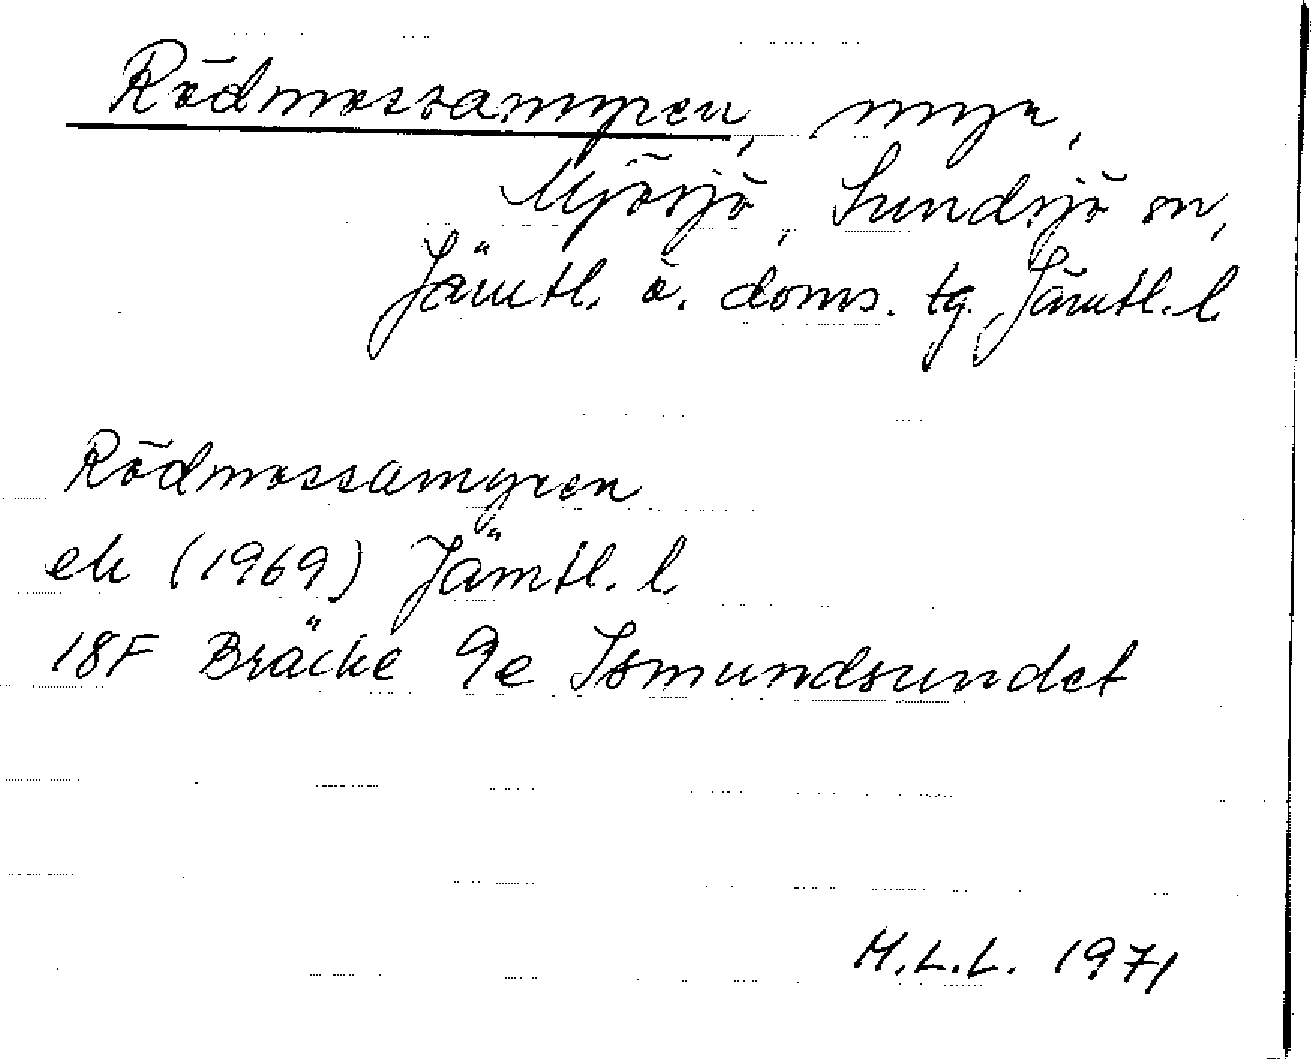 Rödmossamyren, myr,
Mjösjö, Sundsjö sn,
Jämtl. ö. doms. tg. Jämtl. l.
Rödmossamyren
ek (1969) Jämtl. l.
18F Bräcke 9e Ismundsundet
M.L.L. 1971